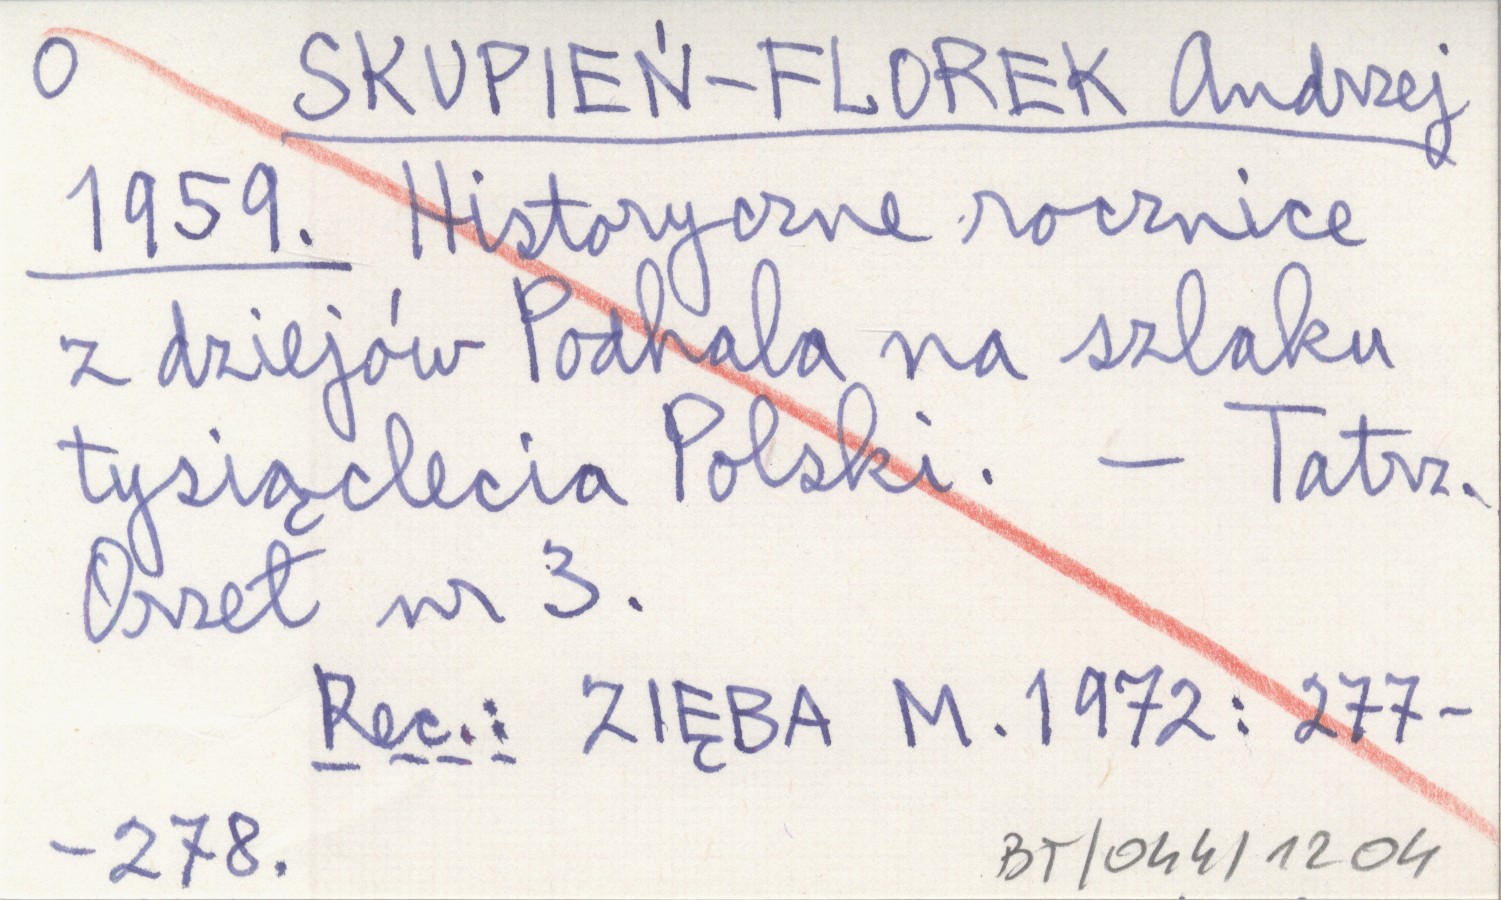 O SKUPIEŃ-FLOREK Andrzej
1959. Historyczne rocznice
z dziejów Podhala na szlaku
tysiąclecia Polski. - Tatrz.
Orzeł nr 3.
Rec.: ZIĘBA M. 1972: 277-
-278.
BT/044/1204